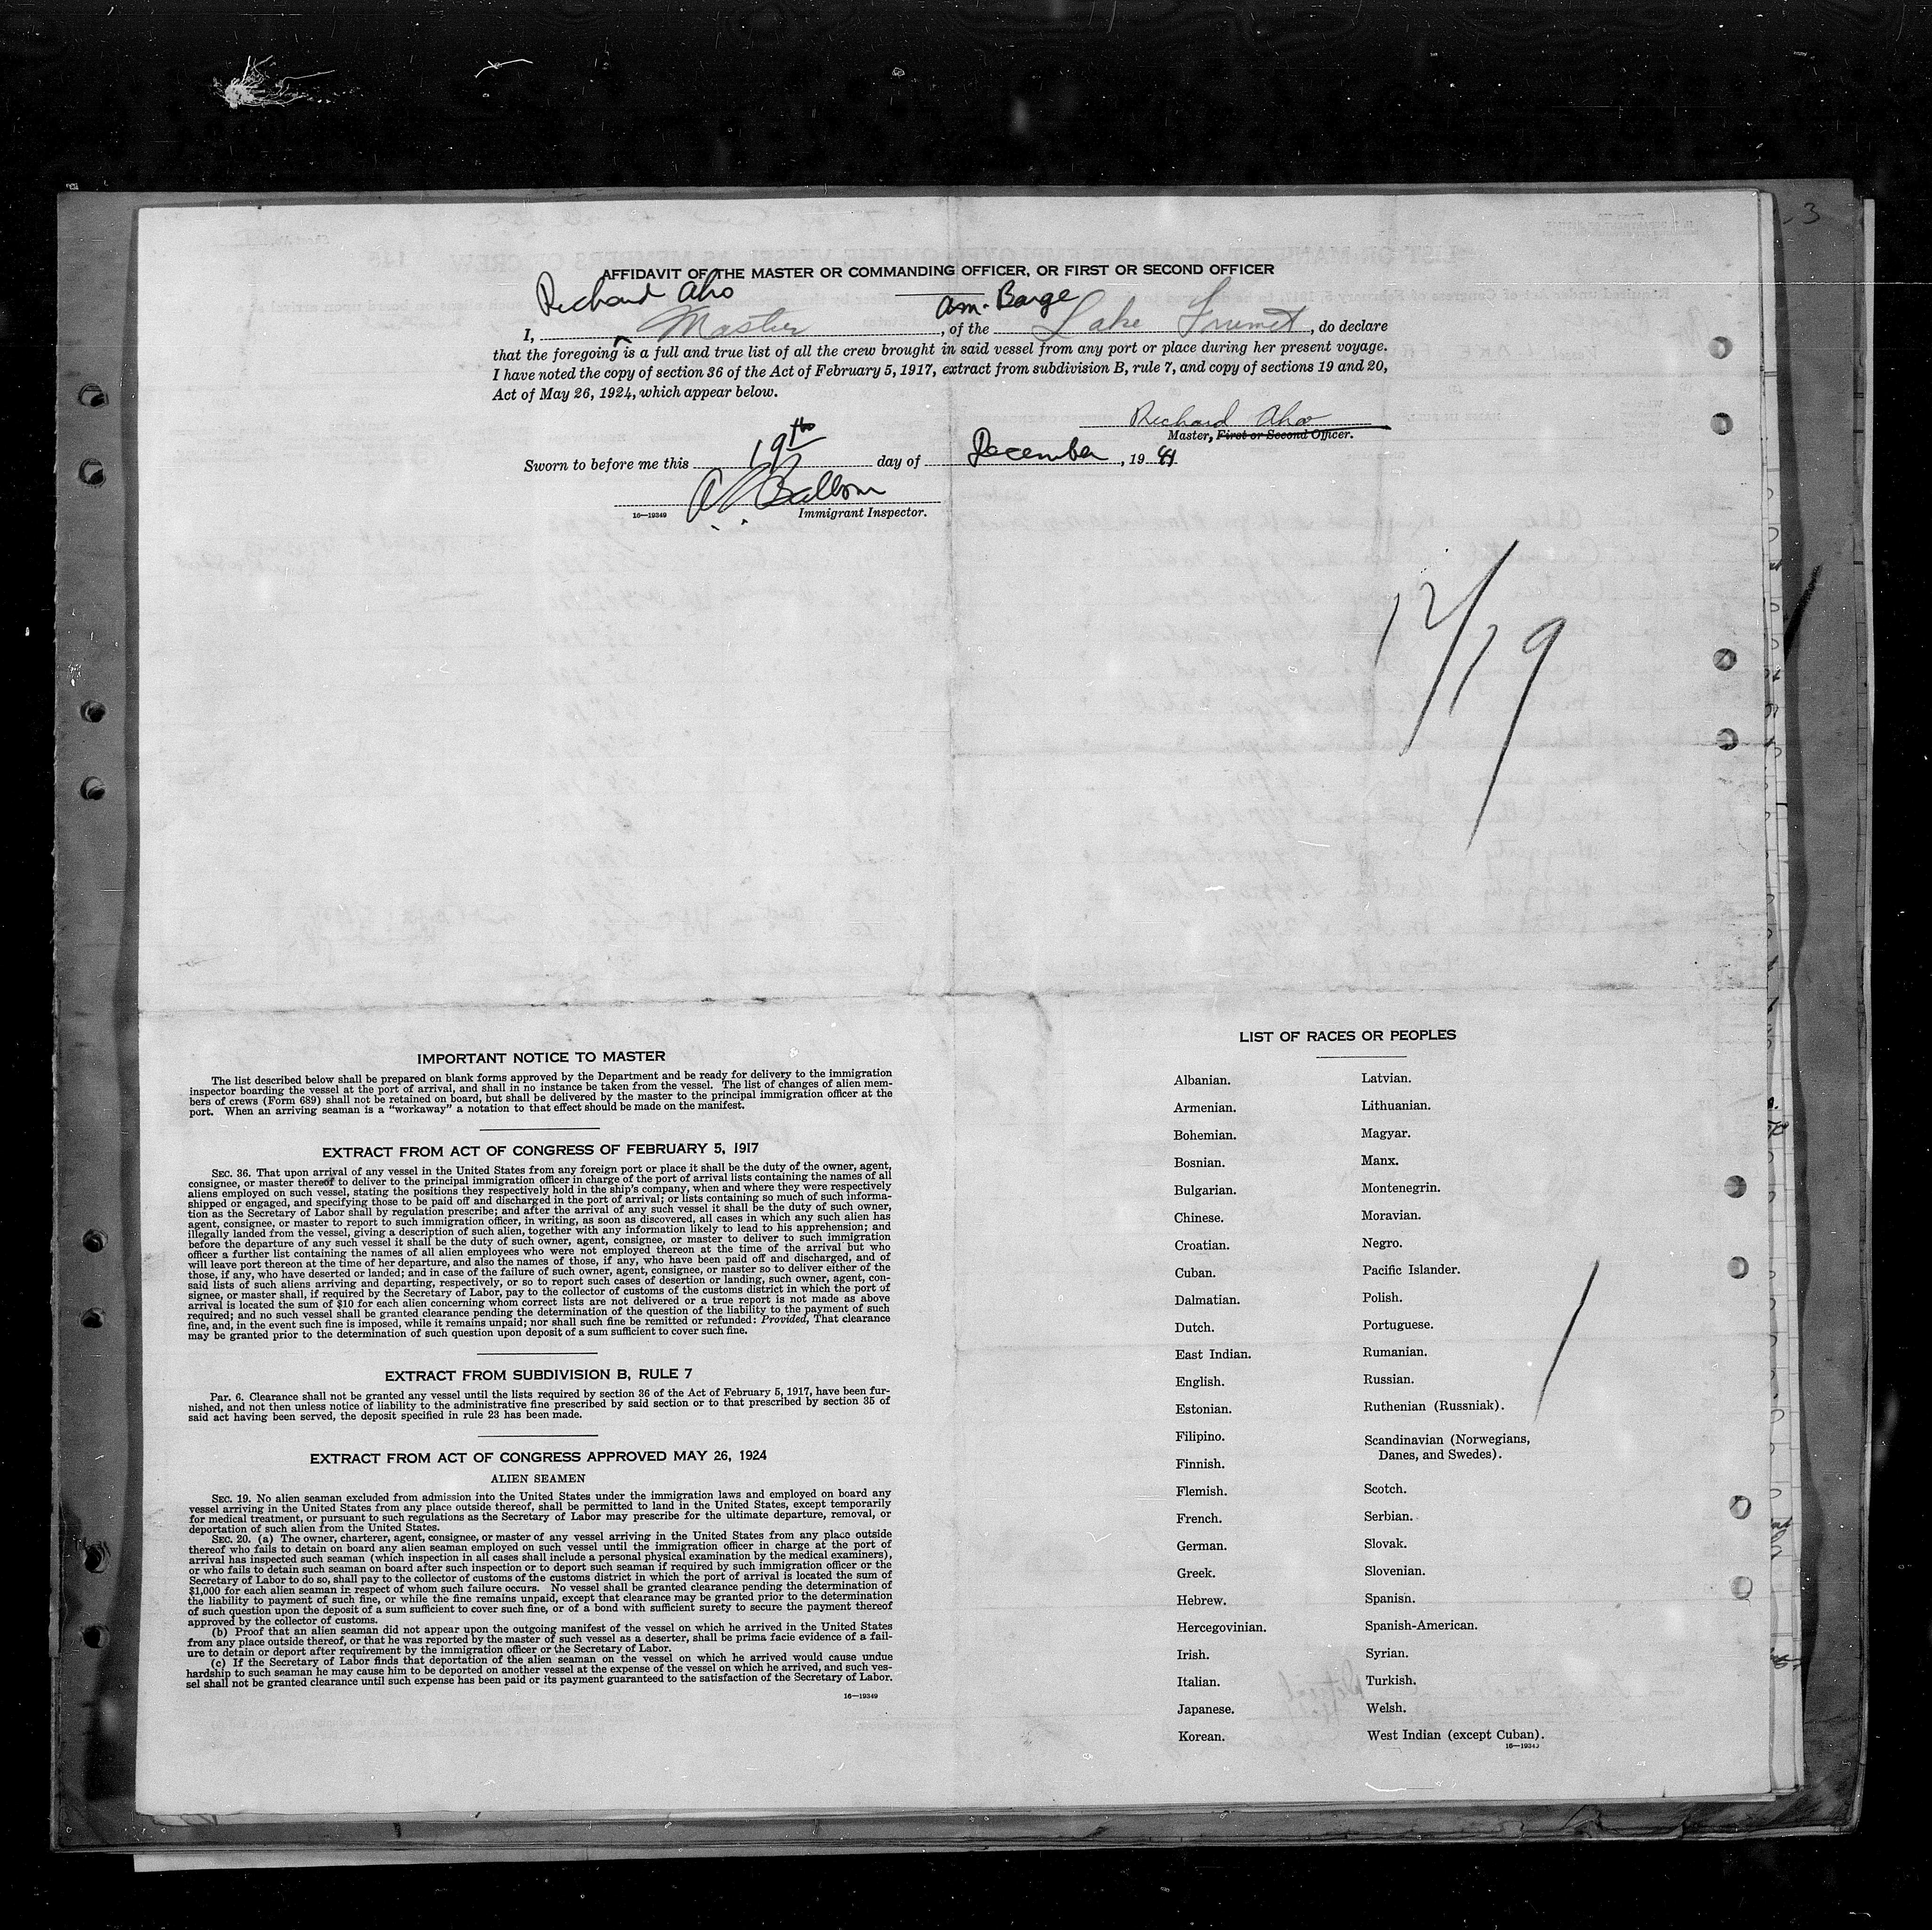 AFFIDAVIT OF THE MASTER OR COMMANDING OFFICER, OR FIRST OR SECOND OFFICER
Richard Aho
Am. Barge
I, Master, of the Lake Frumet, do declare
that the foregoing is a full and true list of all the crew brought in said vessel from any port or place during her present voyage.
I have noted the copy of section 36 of the Act of February 5, 1917, extract from subdivision B, rule 7, and copy of sections 19 and 20,
Act of May 26, 1924, which appear below.
Richard Aho
Master, First or Second Officer.
Sworn to before me this 19th day of December, 1944
16—19349 Immigrant Inspector.
12/19
IMPORTANT NOTICE TO MASTER
The list described below shall be prepared on blank forms approved by the Department and be ready for delivery to the immigration
inspector boarding the vessel at the port of arrival, and shall in no instance be taken from the vessel. The list of changes of alien mem-
bers of crews (Form 689) shall not be retained on board, but shall be delivered by the master to the principal immigration officer at the
port. When an arriving seaman is a "workaway" a notation to that effect should be made on the manifest.
EXTRACT FROM ACT OF CONGRESS OF FEBRUARY 5, 1917
SEC. 36. That upon arrival of any vessel in the United States from any foreign port or place it shall be the duty of the owner, agent,
consignee, or master thereof to deliver to the principal immigration officer in charge of the port of arrival lists containing the names of all
aliens employed on such vessel, stating the positions they respectively hold in the ship's company, when and where they were respectively
shipped or engaged, and specifying those to be paid off and discharged in the port of arrival; or lists containing so much of such informa-
tion as the Secretary of Labor shall by regulation prescribe; and after the arrival of any such vessel it shall be the duty of such owner,
agent, consignee, or master to report to such immigration officer, in writing, as soon as discovered, all cases in which any such alien has
illegally landed from the vessel, giving a description of such alien, together with any information likely to lead to his apprehension; and
before the departure of any such vessel it shall be the duty of such owner, agent, consignee, or master to deliver to such immigration
officer a further list containing the names of all alien employees who were not employed thereon at the time of the arrival but who
will leave port thereon at the time of her departure, and also the names of those, if any, who have been paid off and discharged, and of
those, if any, who have deserted or landed; and in case of the failure of such owner, agent, consignee, or master so to deliver either of the
said lists of such aliens arriving and departing, respectively, or so to report such cases of desertion or landing, such owner, agent, con-
signee, or master shall, if required by the Secretary of Labor, pay to the collector of customs of the customs district in which the port of
arrival is located the sum of $10 for each alien concerning whom correct lists are not delivered or a true report is not made as above
required; and no such vessel shall be granted clearance pending the determination of the question of the liability to the payment of such
fine, and, in the event such fine is imposed, while it remains unpaid; nor shall such fine be remitted or refunded: Provided, That clearance
may be granted prior to the determination of such question upon deposit of a sum sufficient to cover such fine.
EXTRACT FROM SUBDIVISION B, RULE 7
Par. 6. Clearance shall not be granted any vessel until the lists required by section 36 of the Act of February 5, 1917, have been fur-
nished, and not then unless notice of liability to the administrative fine prescribed by said section or to that prescribed by section 35 of
said act having been served, the deposit specified in rule 23 has been made.
EXTRACT FROM ACT OF CONGRESS APPROVED MAY 26, 1924
ALIEN SEAMEN
SEC. 19. No alien seaman excluded from admission into the United States under the immigration laws and employed on board any
vessel arriving in the United States from any place outside thereof, shall be permitted to land in the United States, except temporarily
for medical treatment, or pursuant to such regulations as the Secretary of Labor may prescribe for the ultimate departure, removal, or
deportation of such alien from the United States.
SEC. 20. (a) The owner, charterer, agent, consignee, or master of any vessel arriving in the United States from any place outside
thereof who fails to detain on board any alien seaman employed on such vessel until the immigration officer in charge at the port of
arrival has inspected such seaman (which inspection in all cases shall include a personal physical examination by the medical examiners),
or who fails to detain such seaman on board after such inspection or to deport such seaman if required by such immigration officer or the
Secretary of Labor to do so, shall pay to the collector of customs of the customs district in which the port of arrival is located the sum of
$1,000 for each alien seaman in respect of whom such failure occurs. No vessel shall be granted clearance pending the determination of
the liability to payment of such fine, or while the fine remains unpaid, except that clearance may be granted prior to the determination
of such question upon the deposit of a sum sufficient to cover such fine, or of a bond with sufficient surety to secure the payment thereof
approved by the collector of customs.
(b) Proof that an alien seaman did not appear upon the outgoing manifest of the vessel on which he arrived in the United States
from any place outside thereof, or that he was reported by the master of such vessel as a deserter, shall be prima facie evidence of a fail-
ure to detain or deport after requirement by the immigration officer or the Secretary of Labor.
(c) If the Secretary of Labor finds that deportation of the alien seaman on the vessel on which he arrived would cause undue
hardship to such seaman he may cause him to be deported on another vessel at the expense of the vessel on which he arrived, and such ves-
sel shall not be granted clearance until such expense has been paid or its payment guaranteed to the satisfaction of the Secretary of Labor.
16—19349
LIST OF RACES OR PEOPLES
Albanian.
Armenian.
Bohemian.
Bosnian.
Bulgarian.
Chinese.
Croatian.
Cuban.
Dalmatian.
Dutch.
East Indian.
English.
Estonian.
Filipino.
Finnish.
Flemish.
French.
German.
Greek.
Hebrew.
Hercegovinian.
Irish.
Italian.
Japanese.
Korean.
Latvian.
Lithuanian.
Magyar.
Manx.
Montenegrin.
Moravian.
Negro.
Pacific Islander.
Polish.
Portuguese.
Rumanian.
Russian.
Ruthenian (Russniak).
Scandinavian (Norwegians,
Danes, and Swedes).
Scotch.
Serbian.
Slovak.
Slovenian.
Spanish.
Spanish-American.
Syrian.
Turkish.
Welsh.
West Indian (except Cuban).
16—19349